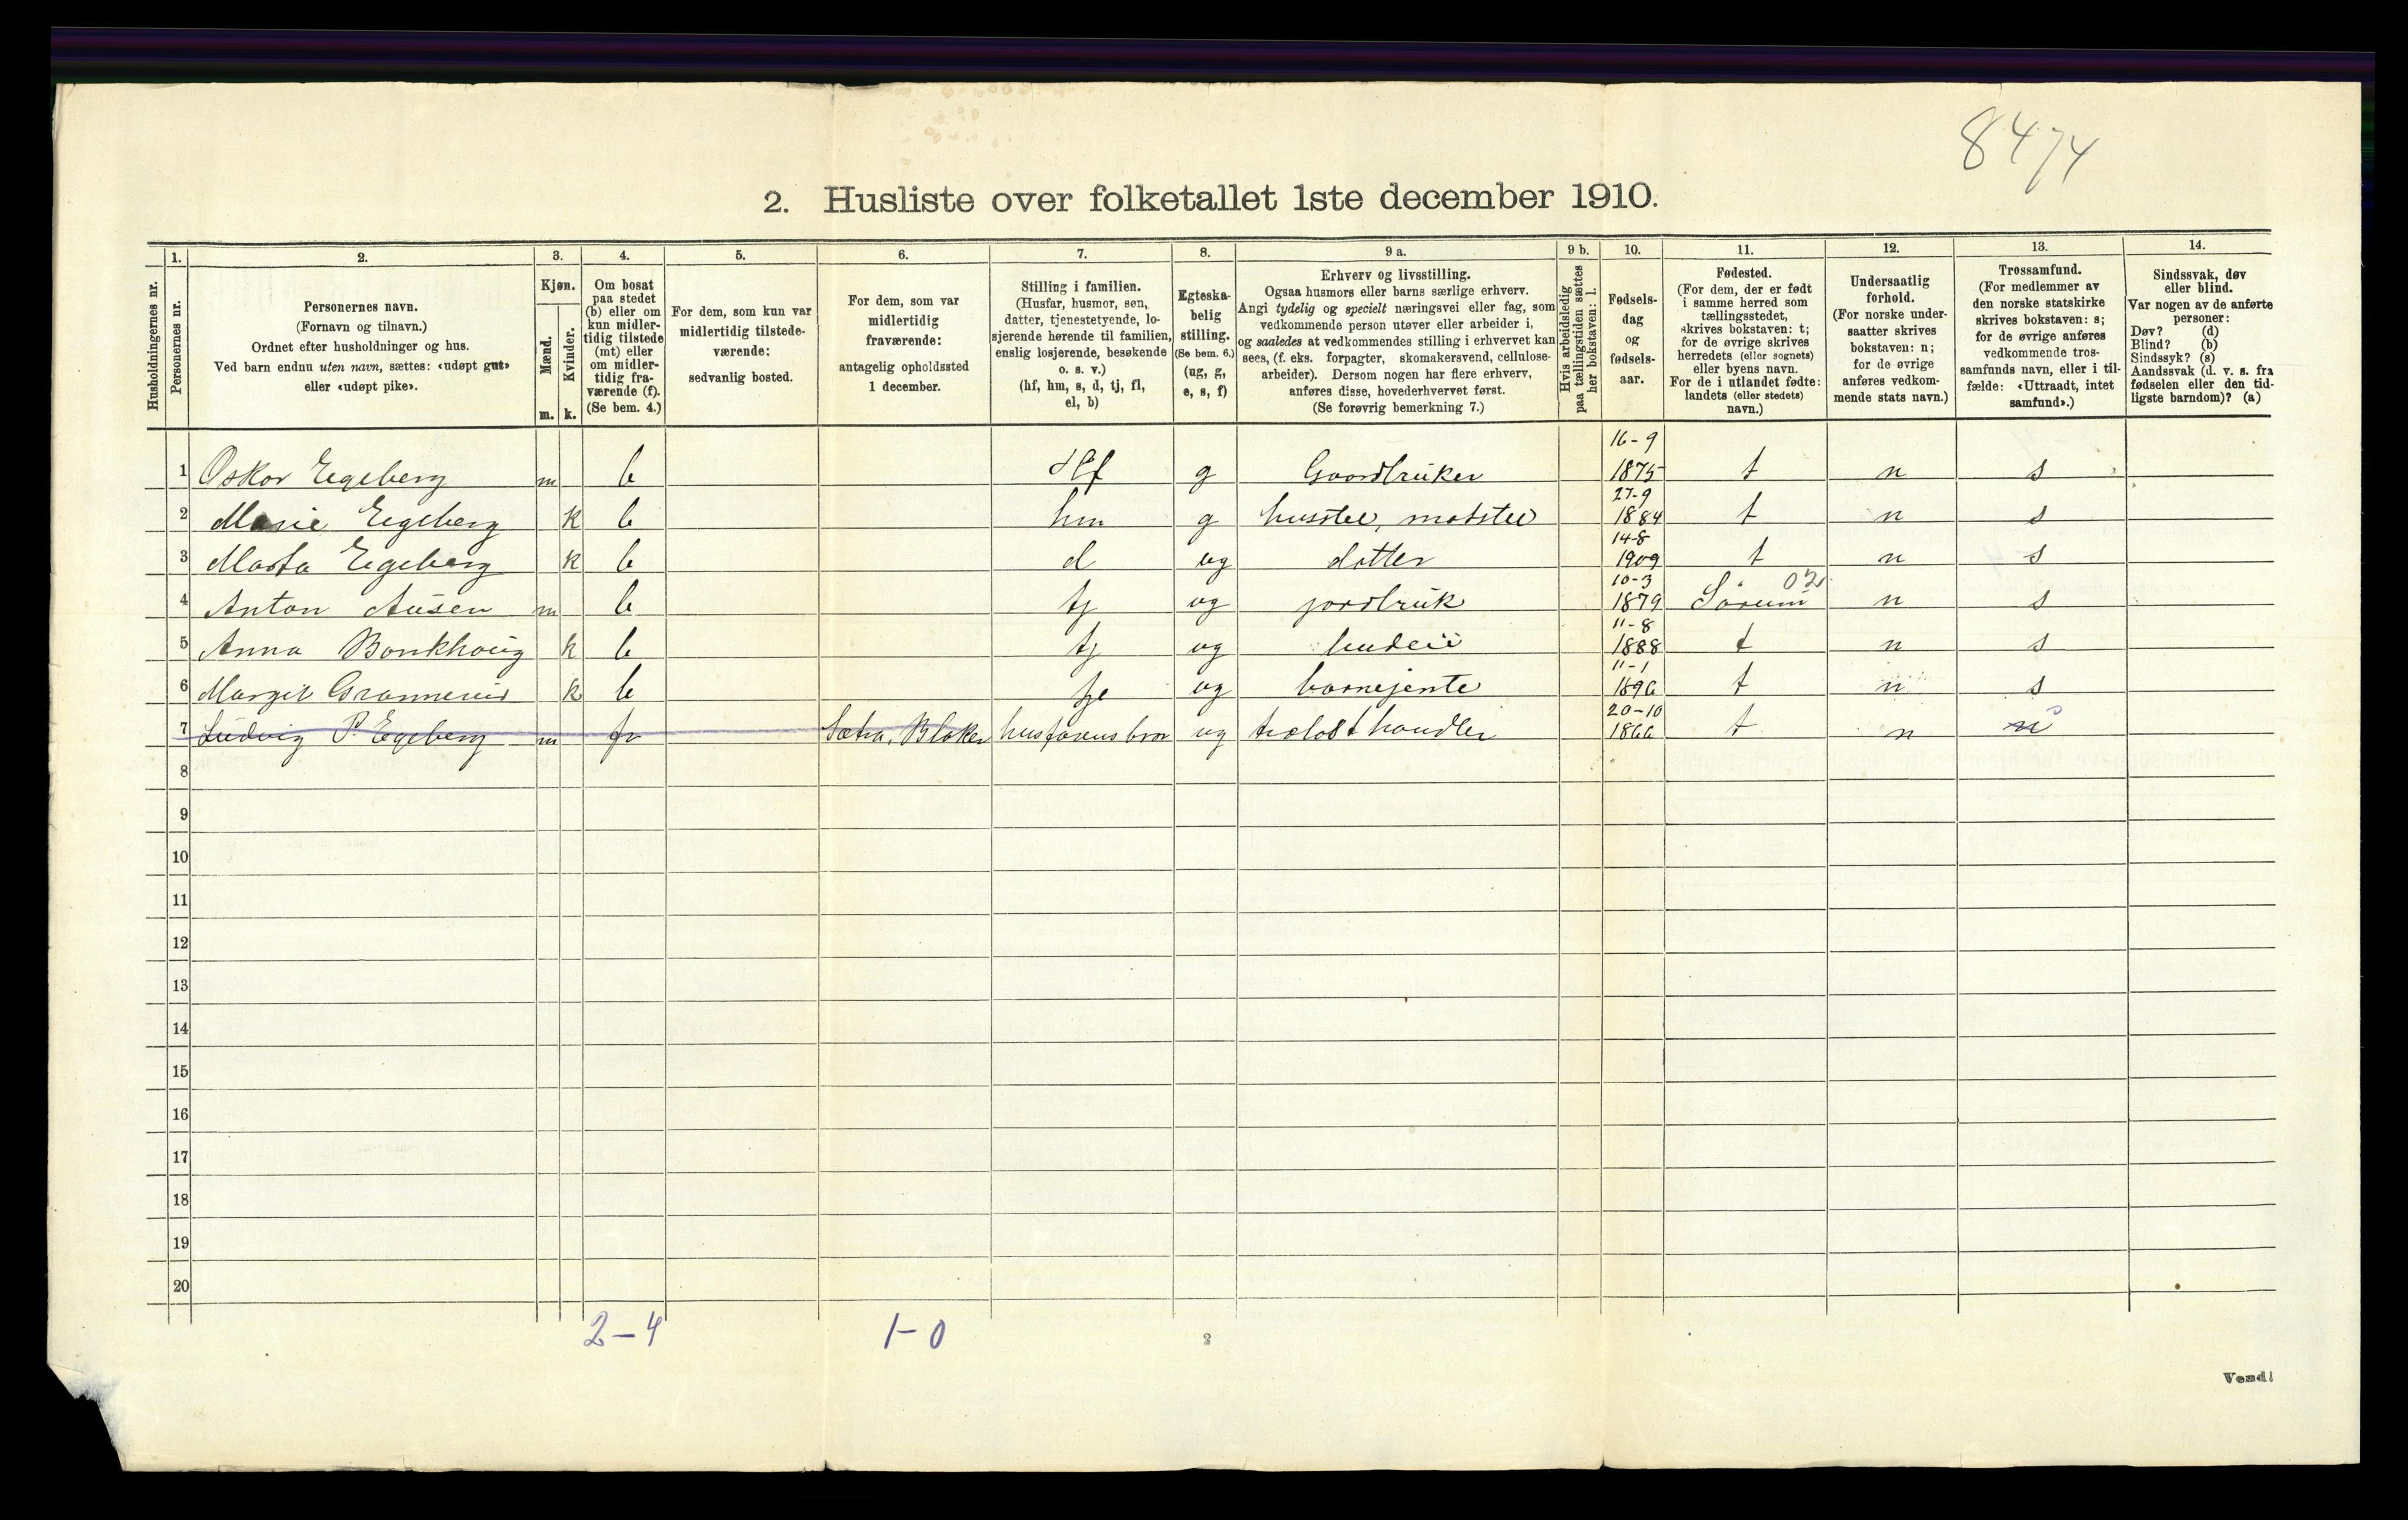 8474
2. Husliste over folketallet 1ste december 1910.
Husholdningernes nr.
1.
Personernes nr.
2.
Personernes navn.
(Fornavn og tilnavn.)
Ordnet efter husholdninger og hus.
Ved barn endnu uten navn, sættes: «udøpt gut»
eller «udøpt pike».
3.
Kjøn.
Mænd.
m.
Kvinder.
k.
4.
Om bosat
paa stedet
(b) eller om
kun midler-
tidig tilstede
(mt) eller
om midler-
tidig fra-
værende (f).
(Se bem. 4.)
5.
For dem, som kun var
midlertidig tilstede-
værende:
sedvanlig bosted.
6.
For dem, som var
midlertidig
fraværende:
antagelig opholdssted
1 december.
7.
Stilling i familien.
(Husfar, husmor, søn,
datter, tjenestetyende, lo-
sjerende hørende til familien,
enslig losjerende, besøkende
o. s. v.)
(hf, hm, s, d, tj, fl,
el, b)
8.
Egteska-
belig
stilling.
(Se bem. 6.)
(ug, g,
e, s, f)
9 a.
Erhverv og livsstilling.
Ogsaa husmors eller barns særlige erhverv.
Angi tydelig og specielt næringsvei eller fag, som
vedkommende person utøver eller arbeider i,
og saaledes at vedkommendes stilling i erhvervet kan
sees, (f. eks. forpagter, skomakersvend, cellulose-
arbeider). Dersom nogen har flere erhverv,
anføres disse, hovederhvervet først.
(Se forøvrig bemerkning 7.)
9 b.
Hvis arbeidsledig
paa tællingstiden sættes
her bokstaven: l.
10.
Fødsels-
dag
og
fødsels-
aar.
11.
Fødested.
(For dem, der er født
i samme herred som
tællingsstedet,
skrives bokstaven: t;
for de øvrige skrives
herredets (eller sognets)
eller byens navn.
For de i utlandet fødte:
landets (eller stedets)
navn.)
12.
Undersaatlig
forhold.
(For norske under-
saatter skrives
bokstaven: n;
for de øvrige
anføres vedkom-
mende stats navn.)
13.
Trossamfund.
(For medlemmer av
den norske statskirke
skrives bokstaven: s;
for de øvrige anføres
vedkommende tros-
samfunds navn, eller i til-
fælde: «Uttraadt, intet
samfund».)
14.
Sindssvak, døv
eller blind.
Var nogen av de anførte
personer:
Døv? (d)
Blind? (b)
Sindssyk? (s)
Aandssvak (d. v. s. fra
fødselen eller den tid-
ligste barndom)? (a)
1 Oskar Egeberg m b Hf g Gaardbruker 16-9 1875 t n s
2 Marie Egeberg k b hm g husstel, matstel 27-9 1884 t n s
3 Marta Egeberg k b d ug datter 14-8 1909 t n s
4 Anton Ausen m b tj ug jordbruk 10-3 1879 Sørum 02 n s
5 Anna Bonkhoug k b tj ug budeie 11-8 1888 t n s
6 Margit k b tje ug barnejente 11-1 1896 t n s
7 Ludvig P. Egeberg m fr Sætra, Blaker husfarens bror ug trælasthandler 20-10 1866 t n n s
8
9
10
11
12
13
14
15
16
17
18
19
20
2-4 1-0
2
Vend!